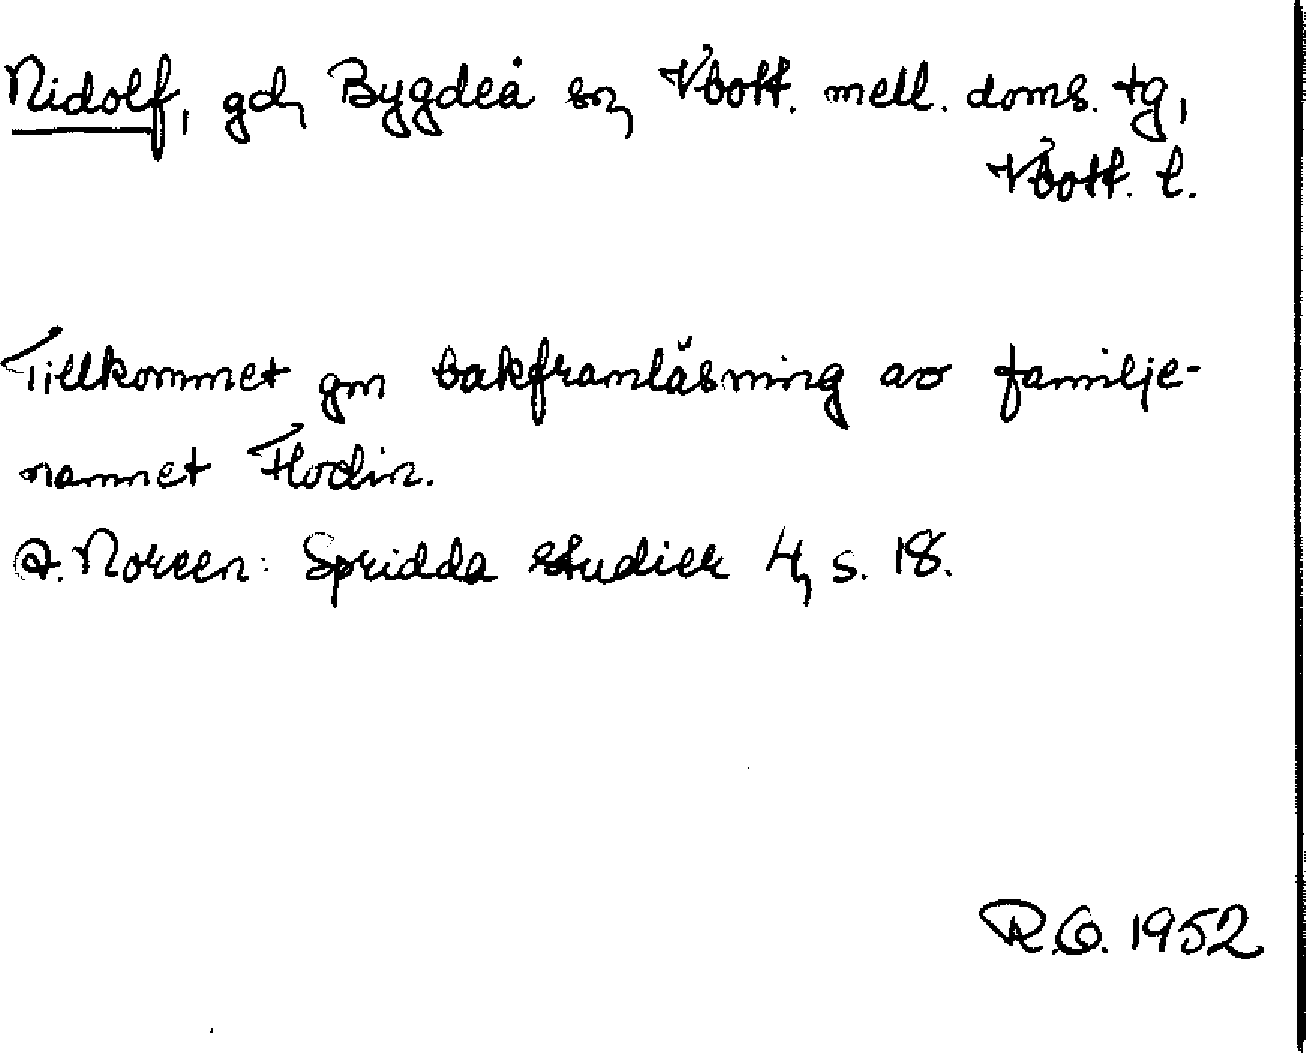 Nidolf, gd, Bygdeå sn, Vbott. mell. doms. tg,
Vbott. l.
Tillkommet gm bakframläsning av familje-
namnet Flodin.
A. Noreen: Spridda studier 4, s. 18.
R.G. 1952